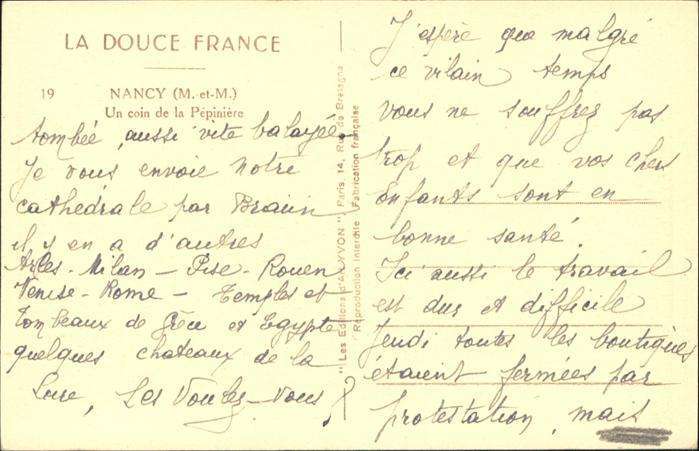 LA DOUCE FRANCE
19 NANCY (M.-et-M.)
Un coin de la Pépinière
tombée, aussi vite balayée.
Je vous envoie notre
cathédrale par Braun
il y en a d'autres
Arles - Milan - Pise - Rouen
Venise - Rome - Temples et
Tombeaux de et Egypte
quelques chateaux de la
Loire, Les Voulez-vous?
"Les Editions d'Art YVON" Paris 14, Rue de Bretagne
Reproduction Interdite Fabrication française
J'espère que malgré
ce vilain temps
vous ne souffrez pas
trop et que vos chers
enfants sont en
bonne santé.
Ici aussi le travail
est dur et difficile
Jeudi toutes les boutiques
étaient fermées par
protestation, mais